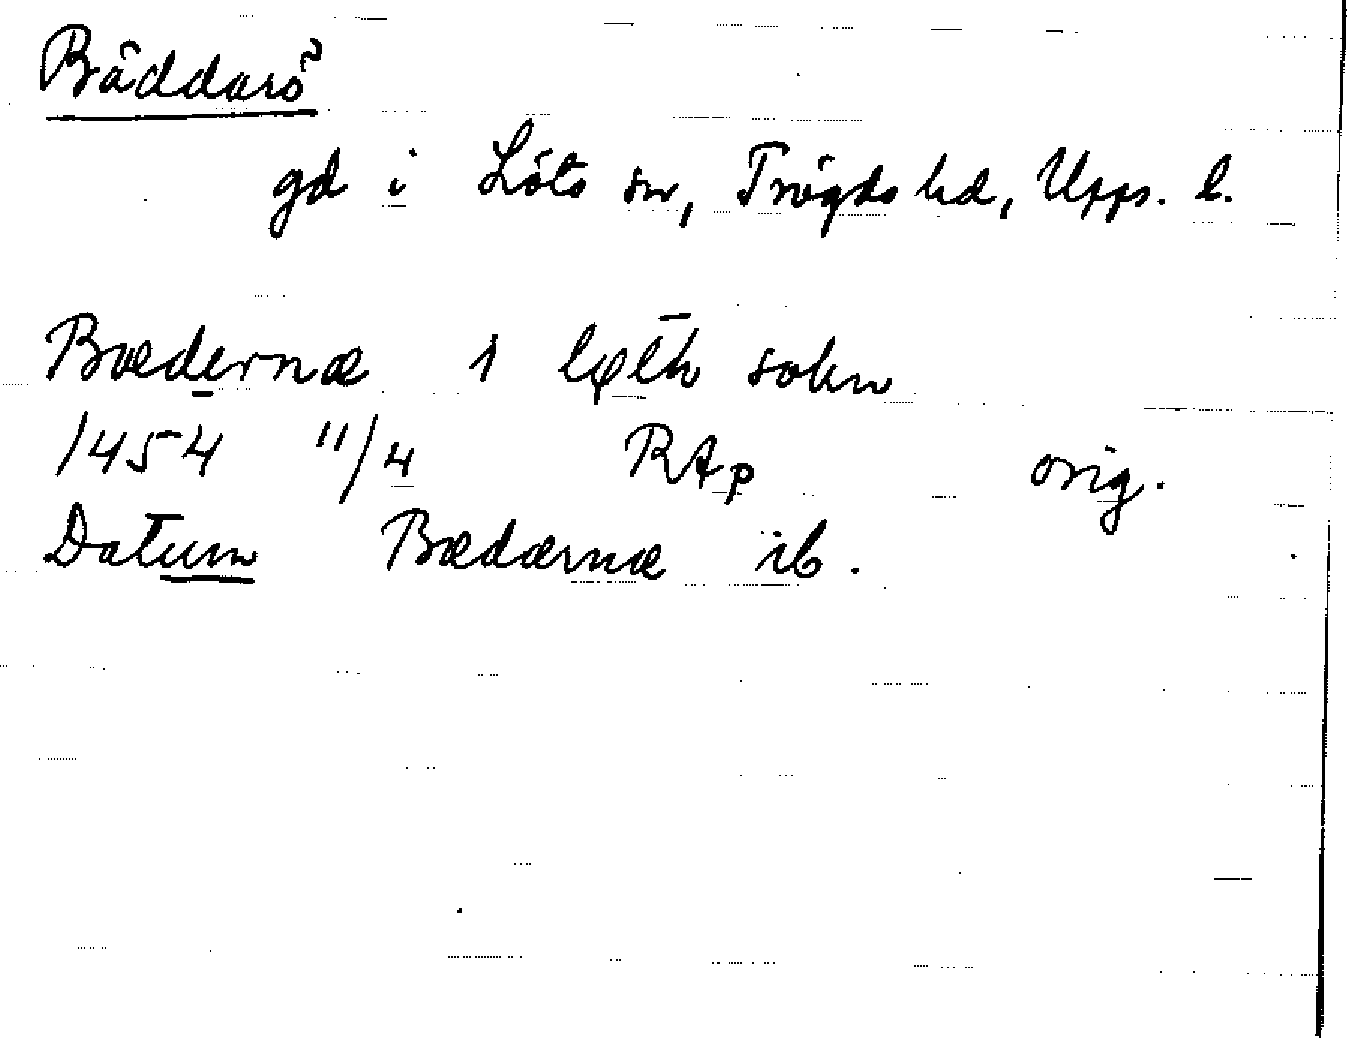 Bäddarö
gd i Löts sn, Trögds hd, Upps. l.
Bædernæ i løth sokn
1454 11/4 RAp orig.
Datum Bædærnæ ib.